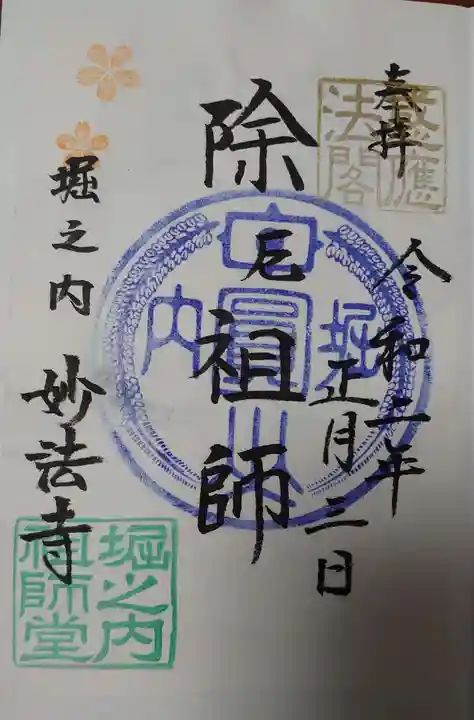 奉拝
令和二年
正月三日
除厄祖師
堀之内 妙法寺
法閣
日圓山
堀
内
堀之内
祖師堂